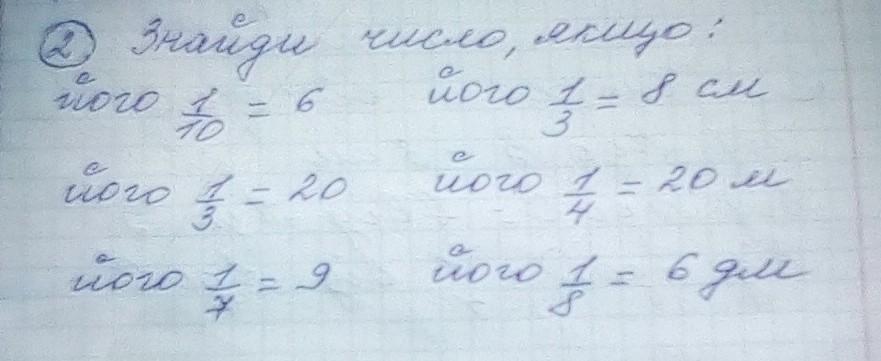 2 Знайди число, якщо:
його 1/10 = 6 його 1/3 = 8 см
його 1/3 = 20 його 1/4 = 20 м
його 1/7 = 9 його 1/8 = 6 дм